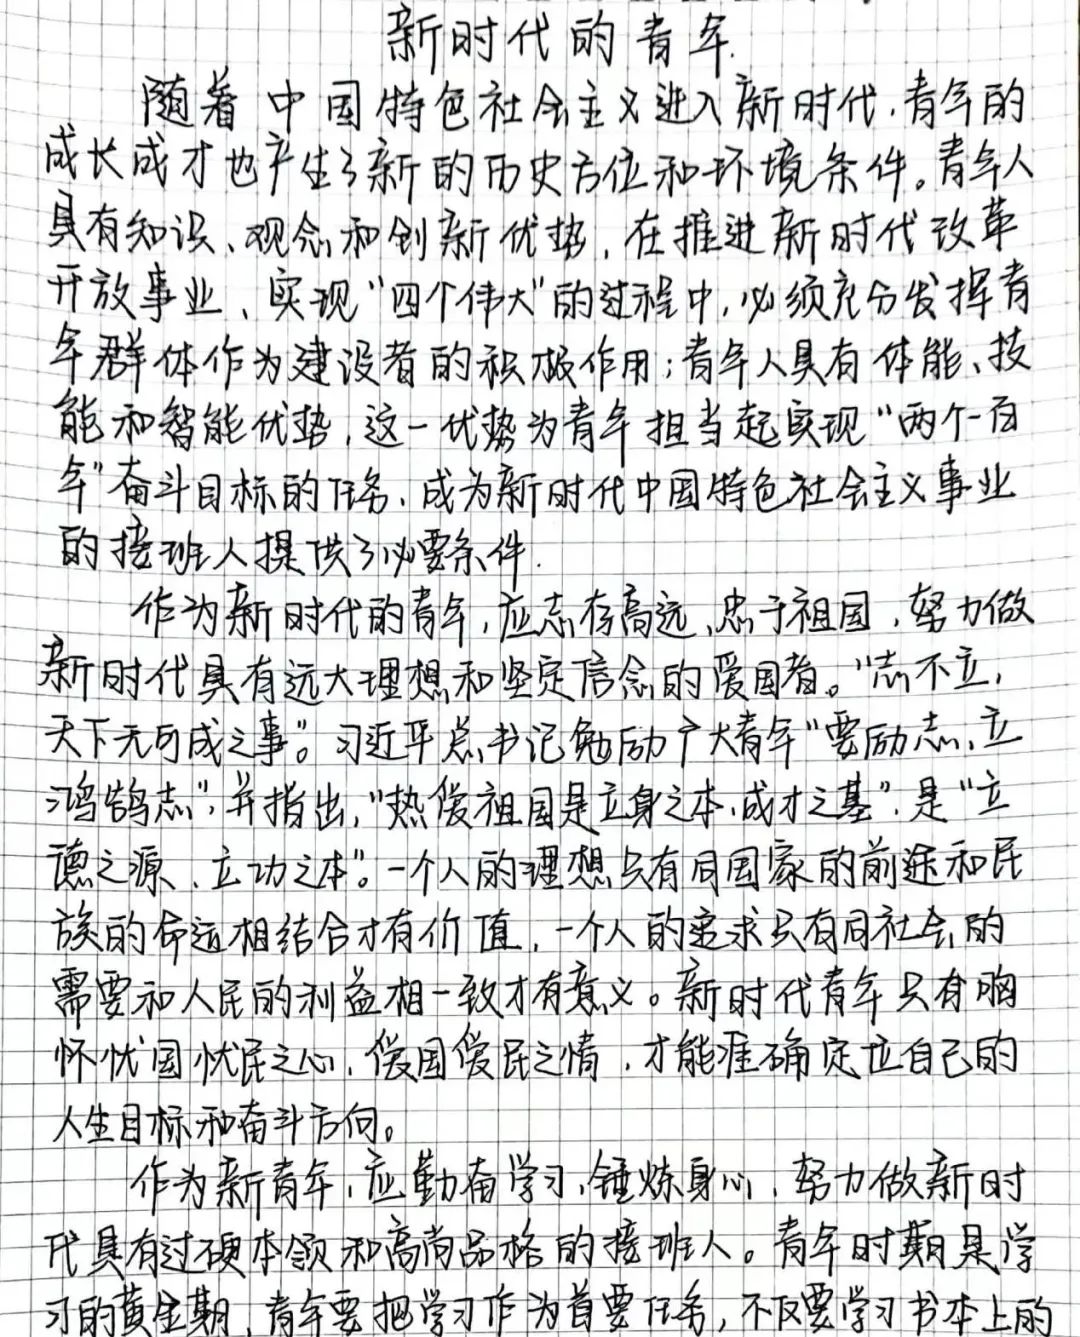 新时代的青年.
随着中国特色社会主义进入新时代,青年的
成长成才也产生了新的历史方位和环境条件。青年人
具有知识、观念和创新优势,在推进新时代改革
开放事业、实现“四个伟大”的过程中,必须充分发挥青
年群体作为建设者的积极作用;青年人具有体能、技
能和智能优势,这一优势为青年担当起实现“两个一百
年”奋斗目标的任务,成为新时代中国特色社会主义事业
的接班人提供了必要条件.
作为新时代的青年,应志存高远、忠于祖国,努力做
新时代具有远大理想和坚定信念的爱国者。“志不立,
天下无可成之事”。习近平总书记勉励广大青年“要励志,立
鸿鹄志”,并指出,“热爱祖国是立身之本,成才之基”,是“立
德之源、立功之本”。一个人的理想只有同国家的前途和民
族的命运相结合才有价值,一个人的追求只有同社会的
需要和人民的利益相一致才有意义。新时代青年只有胸
怀忧国忧民之心,爱国爱民之情,才能准确定位自己的
人生目标和奋斗方向。
作为新青年,应勤奋学习,锤炼身心,努力做新时
代具有过硬本领和高尚品格的接班人。青年时期是学
习的黄金期,青年要把学习作为首要任务,不仅要学习书本上的